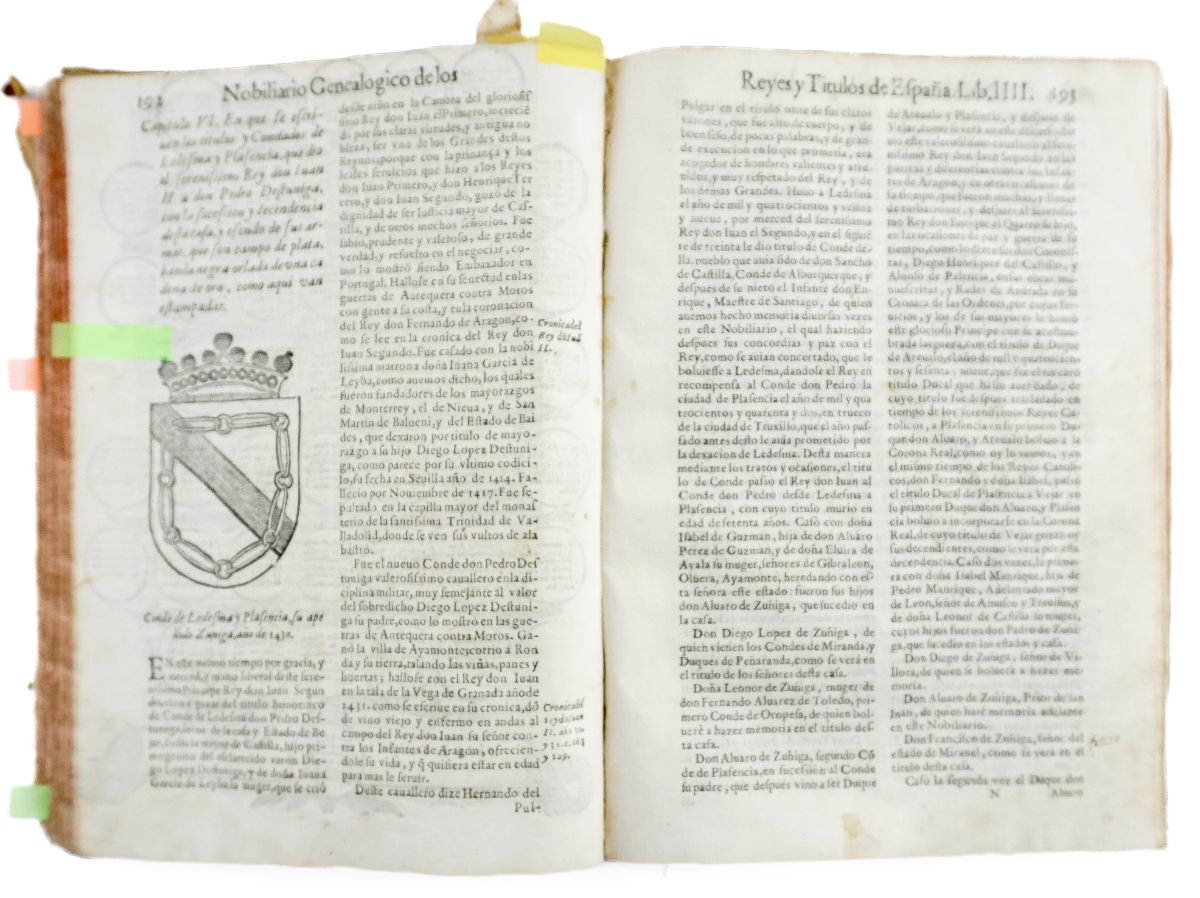 192
Nobiliario Genealogico de los
Capitulo VI. En que se escri-
uen los titulos y Condados de
Ledesma y Plasencia, que dio
el serenissimo Rey don Iuan
II. a don Pedro Destuniga,
con la sucession y decendencia
desta casa, y escudo de sus ar-
mas, que son campo de plata,
banda negra orlada de vna ca
dena de oro, como aqui van
estampadas.
Conde de Ledesma y Plasencia, su ape
llido Zuñiga, año de 1430.
EN este mismo tiempo por gracia, y
merced, y mano liberal deste sere-
nissimo Principe Rey don Iuan Segun
do, vino a gozar del titulo honorifico
de Conde de Ledesma don Pedro Des-
tuniga, señor de la casa y Estado de Be
jar, Iusticia mayor de Castilla, hijo pri-
mogenito del esclarecido varon Die-
go Lopez Destuniga, y de doña Iuana
Garcia de Leyba su muger, que se crió
desde niño en la Camara del gloriosis
simo Rey don Iuan el Primero, merecié
do por sus claras virtudes, y antigua no
bleza, ser vno de los Grandes destos
Reynos, porque con la priuança y los
leales seruicios que hizo a los Reyes
don Iuan Primero, y don Henrique Ter
cero, y don Iuan Segundo, gozó de la
dignidad de ser Iusticia mayor de Cas-
tilla, y de otros muchos señorios. Fue
sabio, prudente y valeroso, de grande
verdad, y resuelto en el negociar, co-
mo lo mostró siendo Embaxador en
Portugal. Hallose en su senectud en las
guerras de Antequera contra Moros
con gente a su costa, y en la coronacion
del Rey don Fernando de Aragon, co-
mo se lee en la cronica del Rey don
Iuan Segundo. Fue casado con la nobi
lissima matrona doña Iuana Garcia de
Leyba, como auemos dicho, los quales
fueron fundadores de los mayorazgos
de Monterrey, el de Nieua, y de San
Martin de Balueni, y del Estado de Bai
des, que dexaron por titulo de mayo-
razgo a su hijo Diego Lopez Destuni-
ga, como parece por su vltimo codici-
lo, su fecha en Seuilla año de 1414. Fa-
llecio por Nouiembre de 1417. Fue se-
pultado en la capilla mayor del monas
terio de la santissima Trinidad de Va-
lladolid, donde se ven sus vultos de ala
bastro.
Fue el nueuo Conde don Pedro Des
tuniga valerosissimo cauallero en la di-
ciplina militar, muy semejante al valor
del sobredicho Diego Lopez Destuni-
ga su padre, como lo mostró en las gue-
rras de Antequera contra Moros. Ga-
nó la villa de Ayamonte, corrio a Ron
da y su tierra, talando las viñas, panes y
huertas; hallose con el Rey don Iuan
en la tala de la Vega de Granada año de
1431. como se escriue en su cronica, dó
de vino viejo y enfermo en andas al
campo del Rey don Iuan su señor con-
tra los Infantes de Aragon, ofrecien-
dole su vida, y q̃ quisiera estar en edad
para mas le seruir.
Deste cauallero dize Hernando del
Pul-
Cronica del
Rey dō Iuā
II.
Cronica del
Rey dō Iuan
II. año 30.
y 31. c. 203
y 209.
Reyes y Titulos de España Lib, IIII. 193
Pulgar en el titulo onze de sus claros
varones, que fue alto de cuerpo, y de
buen seso, de pocas palabras, y de gran
de execucion en lo que prometia, era
acogedor de hombres valientes y atre
uidos, y muy respetado del Rey, y de
los demas Grandes. Huuo a Ledesma
el año de mil y quatrocientos y veinte
y nueue, por merced del serenissimo
Rey don Iuan el Segundo, y en el siguié
te de treinta le dio titulo de Conde de-
lla, pueblo que auia sido de don Sancho
de Castilla, Conde de Alburquerque, y
despues de su nieto el Infante don En-
rique, Maestre de Santiago, de quien
auemos hecho memoria diuersas vezes
en este Nobiliario, el qual haziendo
despues sus concordias y paz con el
Rey, como se auian concertado, que le
boluiesse a Ledesma, dandose el Rey en
recompensa al Conde don Pedro la
ciudad de Plasencia el año de mil y qua
trocientos y quarenta y dos, en trueco
de la ciudad de Truxillo, que el año pas-
sado antes desto le auia prometido por
la dexacion de Ledesma. Desta manera
mediante los tratos y ocasiones, el titu
lo de Conde passó el Rey don Iuan al
Conde don Pedro desde Ledesma a
Plasencia, con cuyo titulo murio en
edad de setenta años. Casó con doña
Isabel de Guzman, hija de don Aluaro
Perez de Guzman, y de doña Eluira de
Ayala su muger, señores de Gibraleon,
Oluera, Ayamonte, heredando con es-
ta señora este estado: fueron sus hijos
don Aluaro de Zuñiga, que sucedio en
la casa.
Don Diego Lopez de Zuñiga, de
quien vienen los Condes de Miranda, y
Duques de Peñaranda, como se verá en
el titulo de los señores desta casa.
Doña Leonor de Zuñiga, muger de
don Fernando Aluarez de Toledo, pri-
mero Conde de Oropesa, de quien bol-
ueré a hazer memoria en el titulo des-
ta casa.
Don Aluaro de Zuñiga, segundo Có
de de Plasencia, en sucession al Conde
su padre, que despues vino a ser Duque
de Areualo y Plasencia, y despues de
Vejar, como se verá en este discurso. Sir
uio este valerosissimo cauallero al sere-
nissimo Rey don Iuan Segundo en las
guerras y diferencias contra los Infan-
tes de Aragon, y en otras ocasiones de
su tiempo, que fueron muchas, y llenas
de turbaciones, y despues al serenissi-
mo Rey don Enrique el Quarto su hijo,
en las ocasiones de paz y guerra de su
tiempo, como lo dizen sus dos Coronis-
tas, Diego Henriquez del Castillo, y
Alonso de Palencia, en sus obras ma-
nuescritas, y Rades de Andrada en su
Cronica de las Ordenes, por cuyos ser-
uicios, y los de sus mayores le honró
este glorioso Principe con su acostum-
brada largueza, con el titulo de Duque
de Areualo, el año de mil y quatrocien-
tos y sesenta y nueue, que fue el tercero
titulo Ducal que hallo aueriguado, de
cuyo titulo fue despues trasladado en
tiempo de los serenissimos Reyes Ca-
tolicos, a Plasencia en su primero Du-
que don Aluaro, y Areualo boluio a la
Corona Real, como oy lo vemos, y en
el mismo tiempo de los Reyes Catoli-
cos, don Fernando y doña Isabel, passó
el titulo Ducal de Plasencia a Vejar en
su primero Duque don Aluaro, y Plasen
cia boluio a incorporarse en la Corona
Real, de cuyo titulo de Vejar gozan oy
sus decendientes, como se vera por esta
decendencia. Casó dos vezes, la prime-
ra con doña Isabel Manrique, hija de
Pedro Manrique, Adelantado mayor
de Leon, señor de Amusco y Treuiño, y
de doña Leonor de Castilla su muger,
cuyos hijos fueron don Pedro de Zuñi-
ga, que sucedio en los estados y casa.
Don Diego de Zuñiga, señor de Vi-
llora, de quien se boluerà a hazer me-
moria.
Don Aluaro de Zuñiga, Prior de san
Iuan, de quien haré memoria adelante
en este Nobiliario.
Don Francisco de Zuñiga, señor del
estado de Mirauel, como se verá en el
titulo desta casa.
Casó la segunda vez el Duque don
N
Aluaro